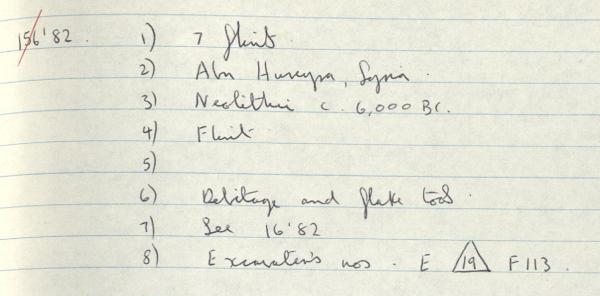 156'82. 1) 7 flints.
2) Abu Hureyra, Syria.
3) Neolithic c. 6,000 BC.
4) Flint.
5)
6) Debitage and flake tools.
7) See 16'82
8) Excavator's nos. E 19 F113.